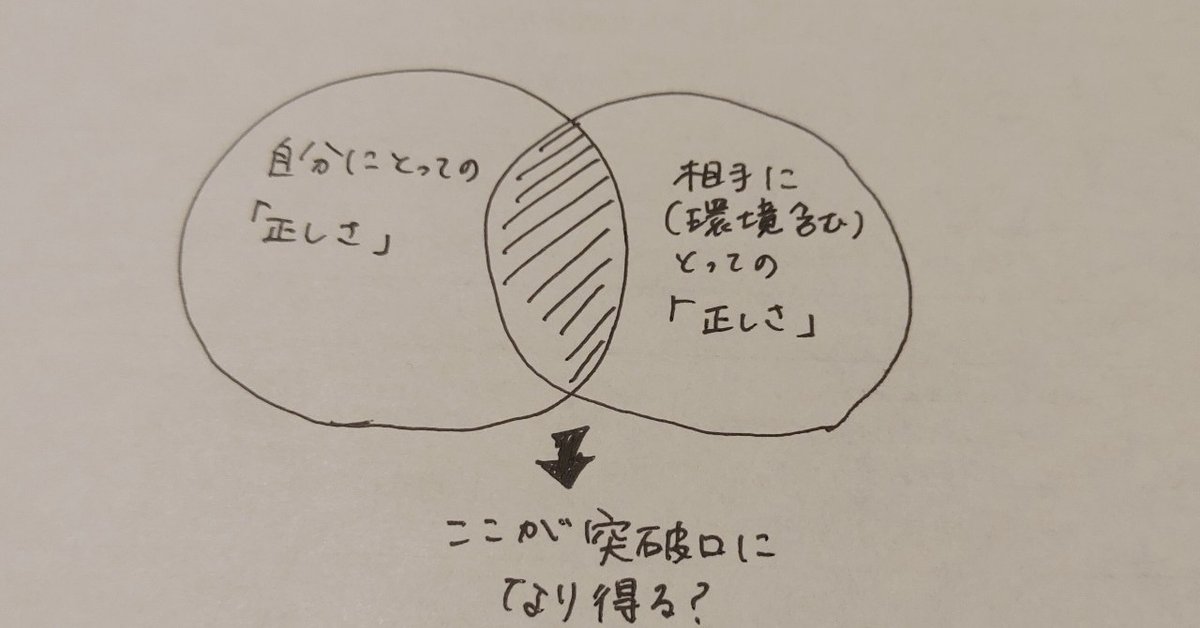 自分にとっての
「正しさ」
相手に
(環境含む)
とっての
「正しさ」
ここが突破口に
なり得る?